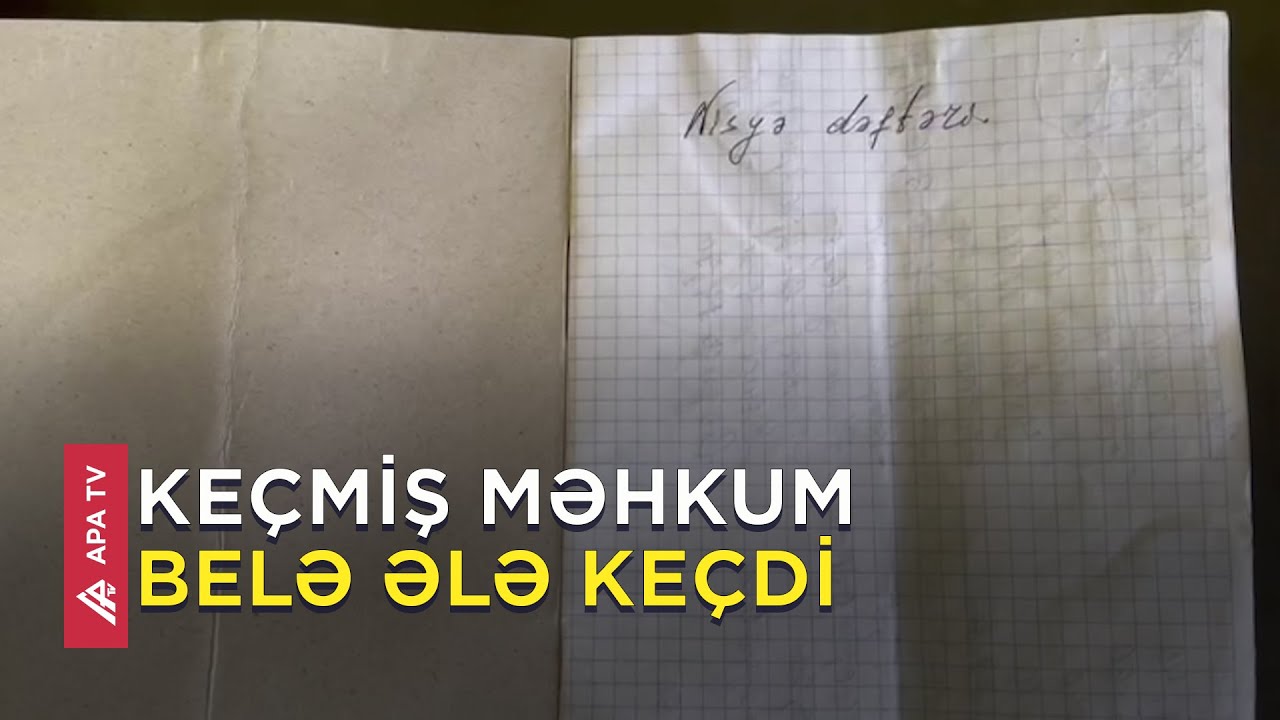 Nisyə dəftəri.
APA TV
KEÇMİŞ MƏHKUM
BELƏ ƏLƏ KEÇDİ